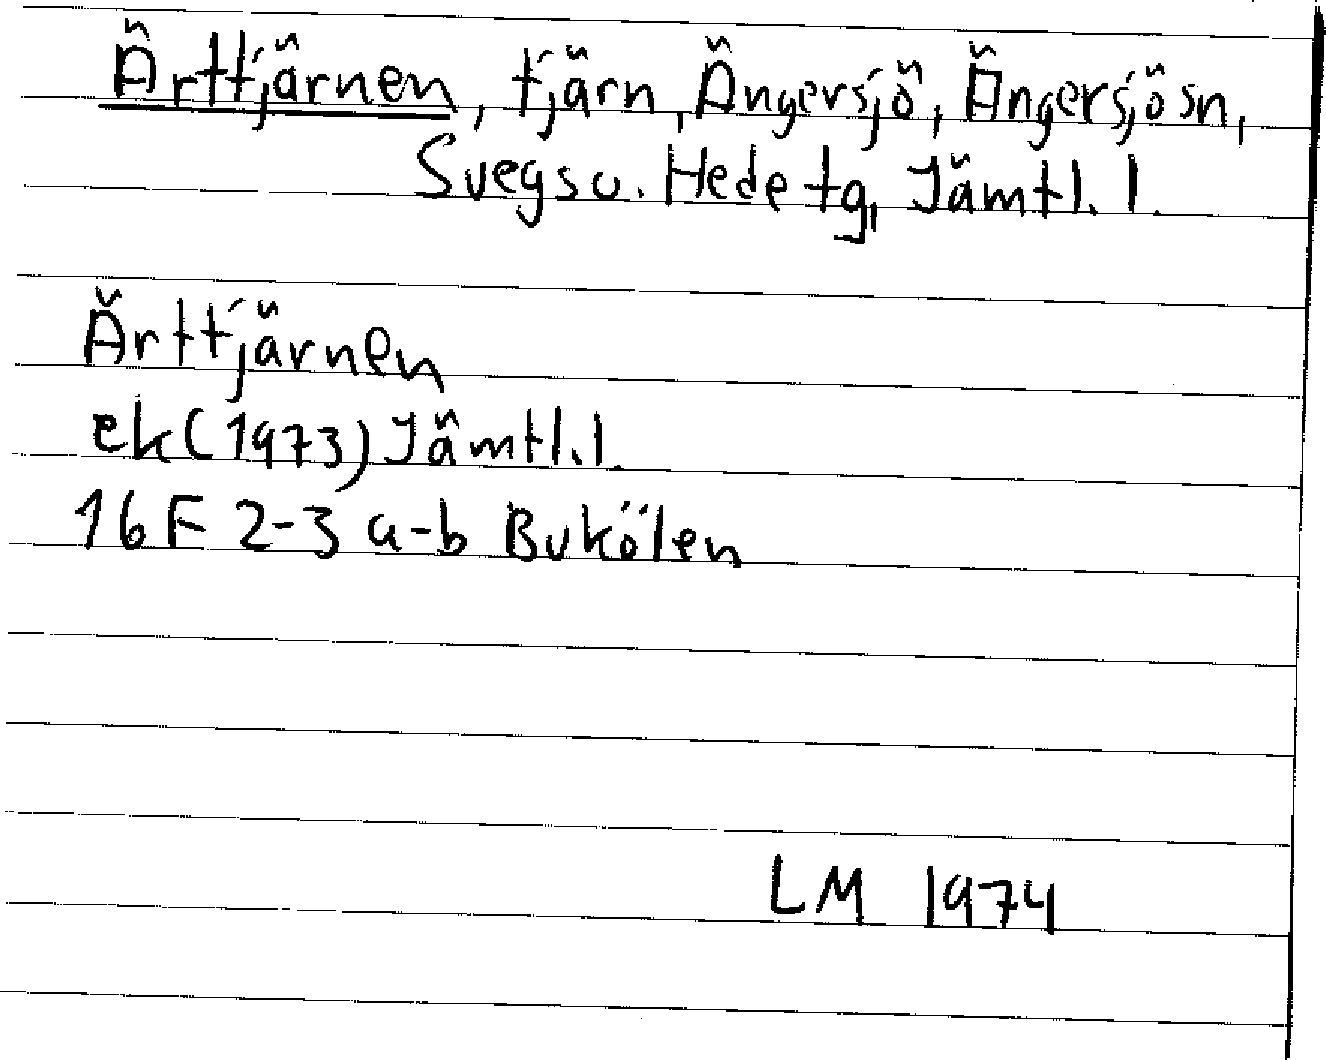 Ärttjärnen, tjärn, Ängersjö, Ängersjösn,
Svegsv. Hede tg, Jämtl. l.
Ärttjärnen
ek (1973) Jämtl. l.
16F 2-3 a-b Bukölen
LM 1974